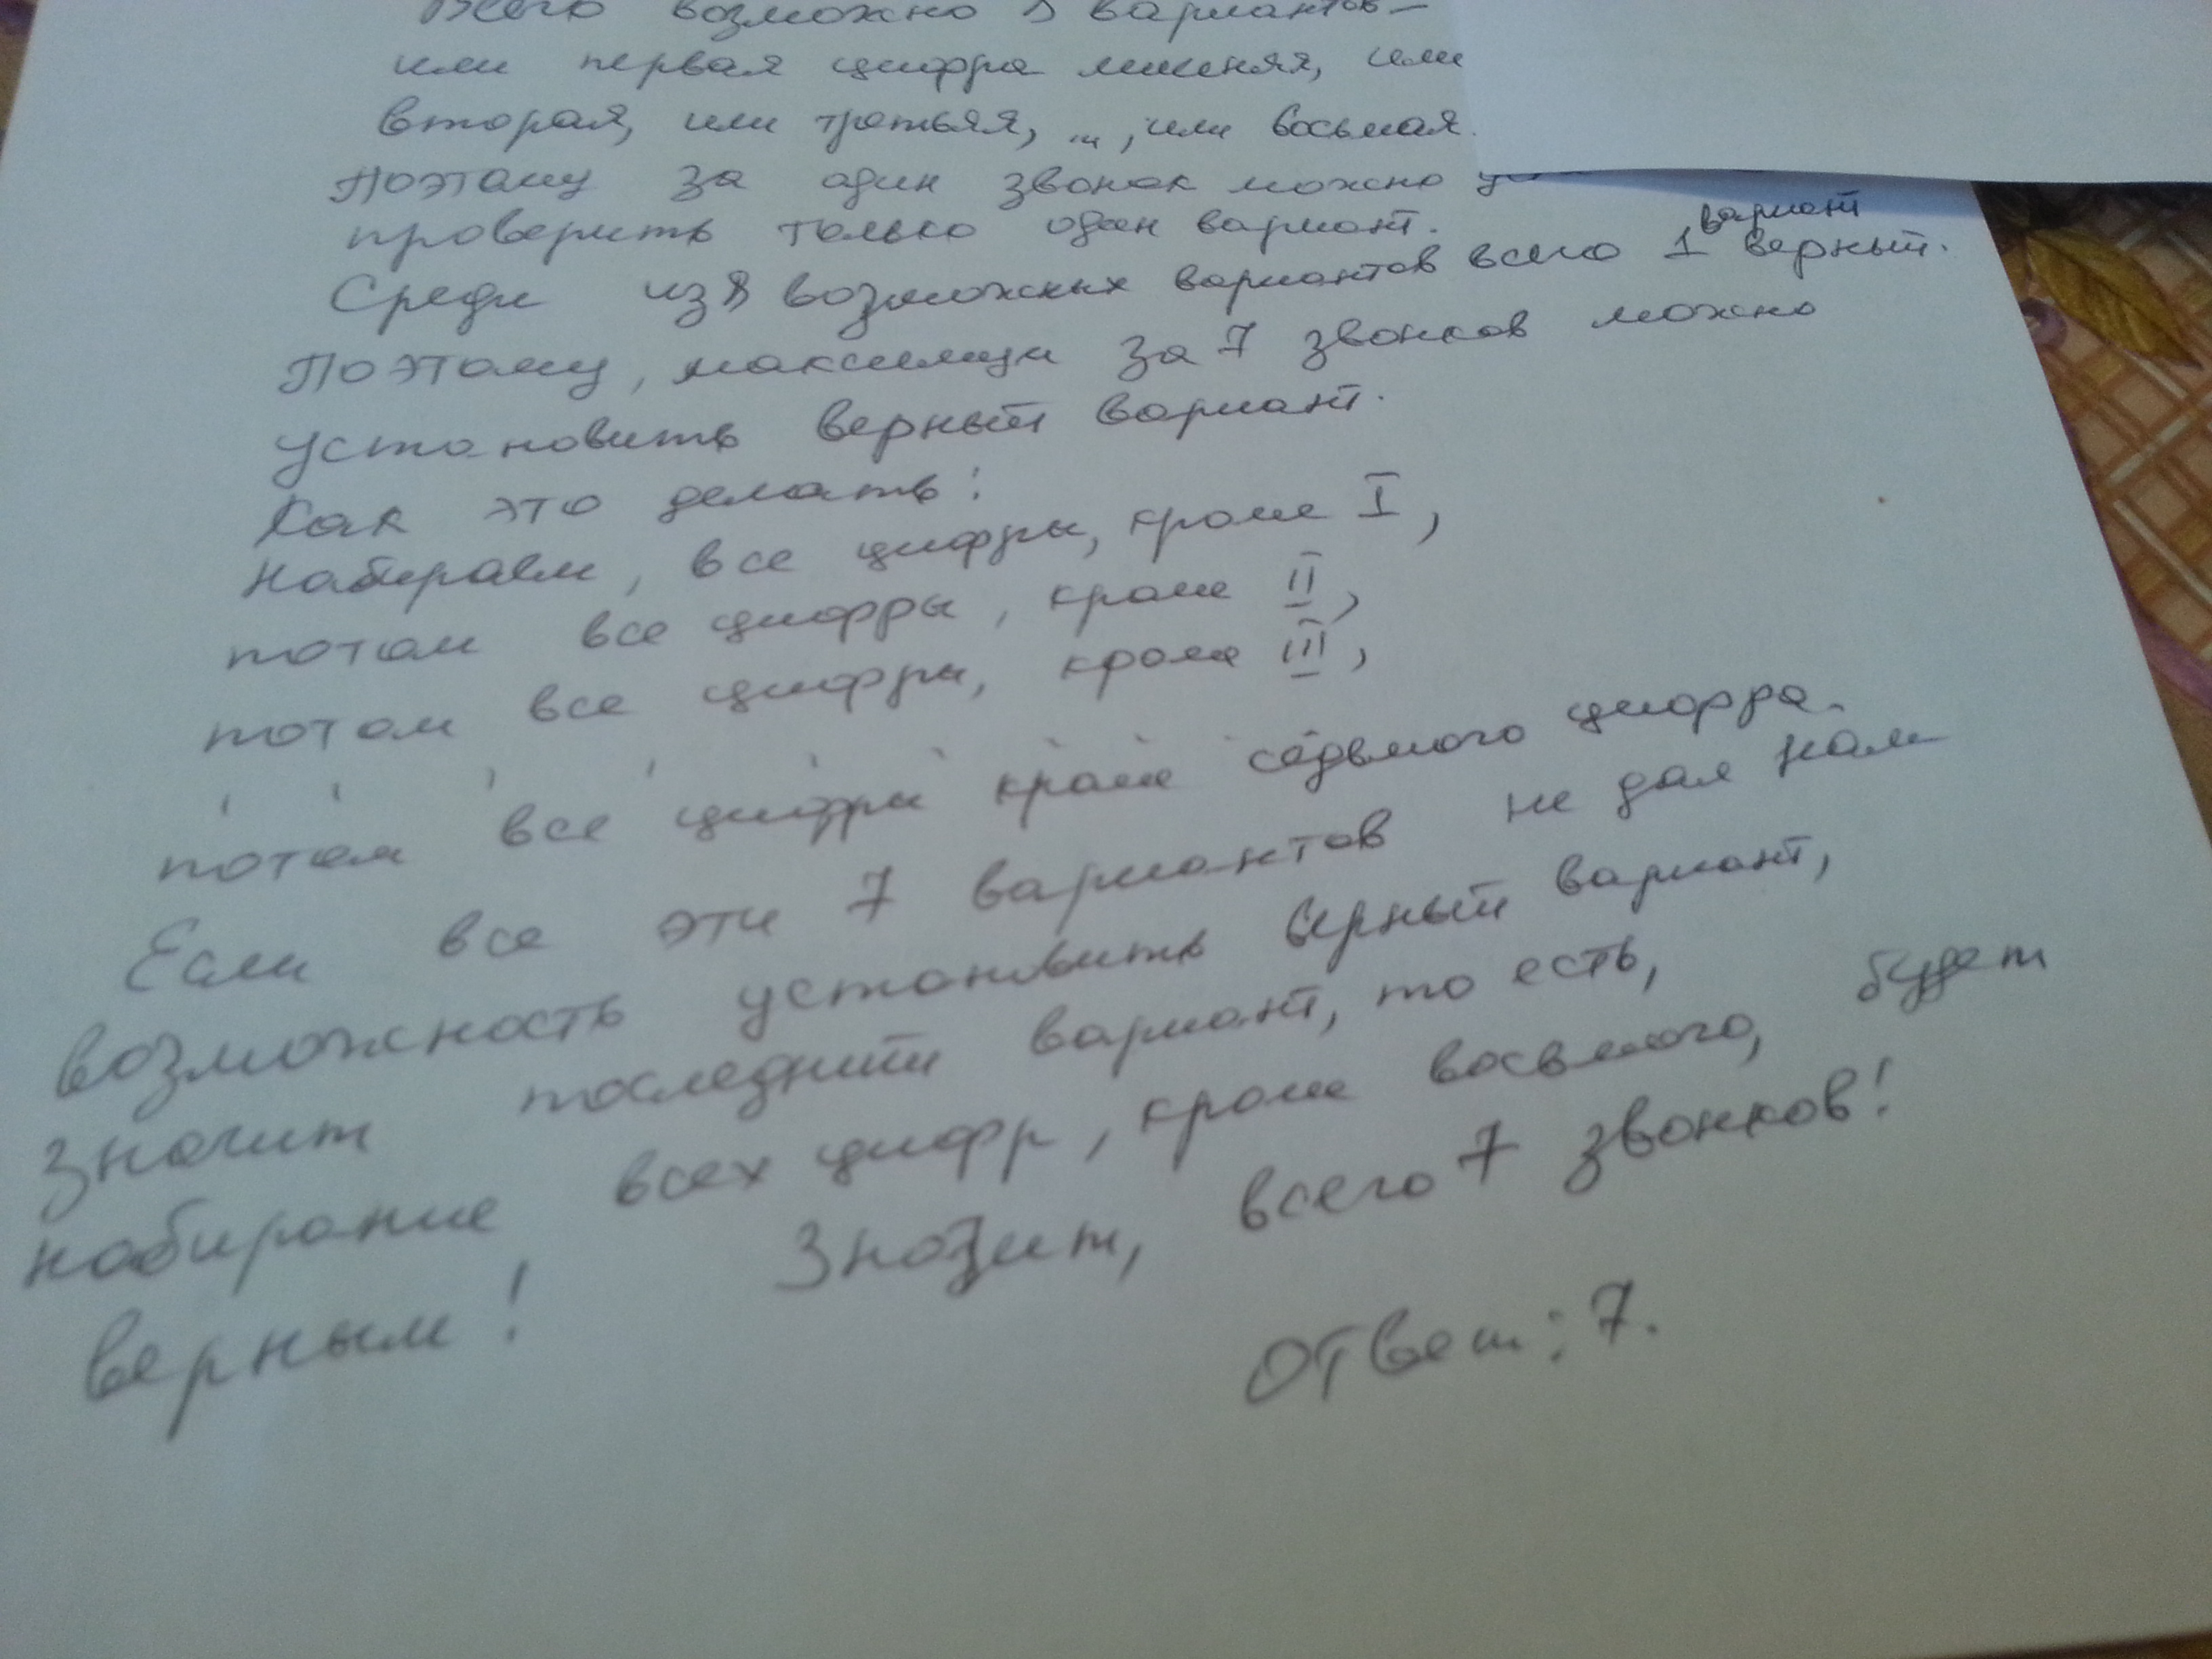 Всего возможно 8 вариантов –
или первая цифра лишняя, или
вторая, или третья, ..., или восьмая.
Поэтому за один звонок можно
проверить только один вариант.
Среди из 8 возможных вариантов всего 1 вариант верный.
Поэтому, максимум за 7 звонков можно
установить верный вариант.
Как это делать:
Набираем, все цифры, кроме I,
потом все цифры, кроме II,
потом все цифры, кроме III,
потом все цифры кроме седьмого цифра.
Если все эти 7 вариантов не дал нам
возможность установить верный вариант,
значит последний вариант, то есть,
набирание всех цифр, кроме восьмого, будет
верным! Значит, всего 7 звонков!
Ответ: 7.